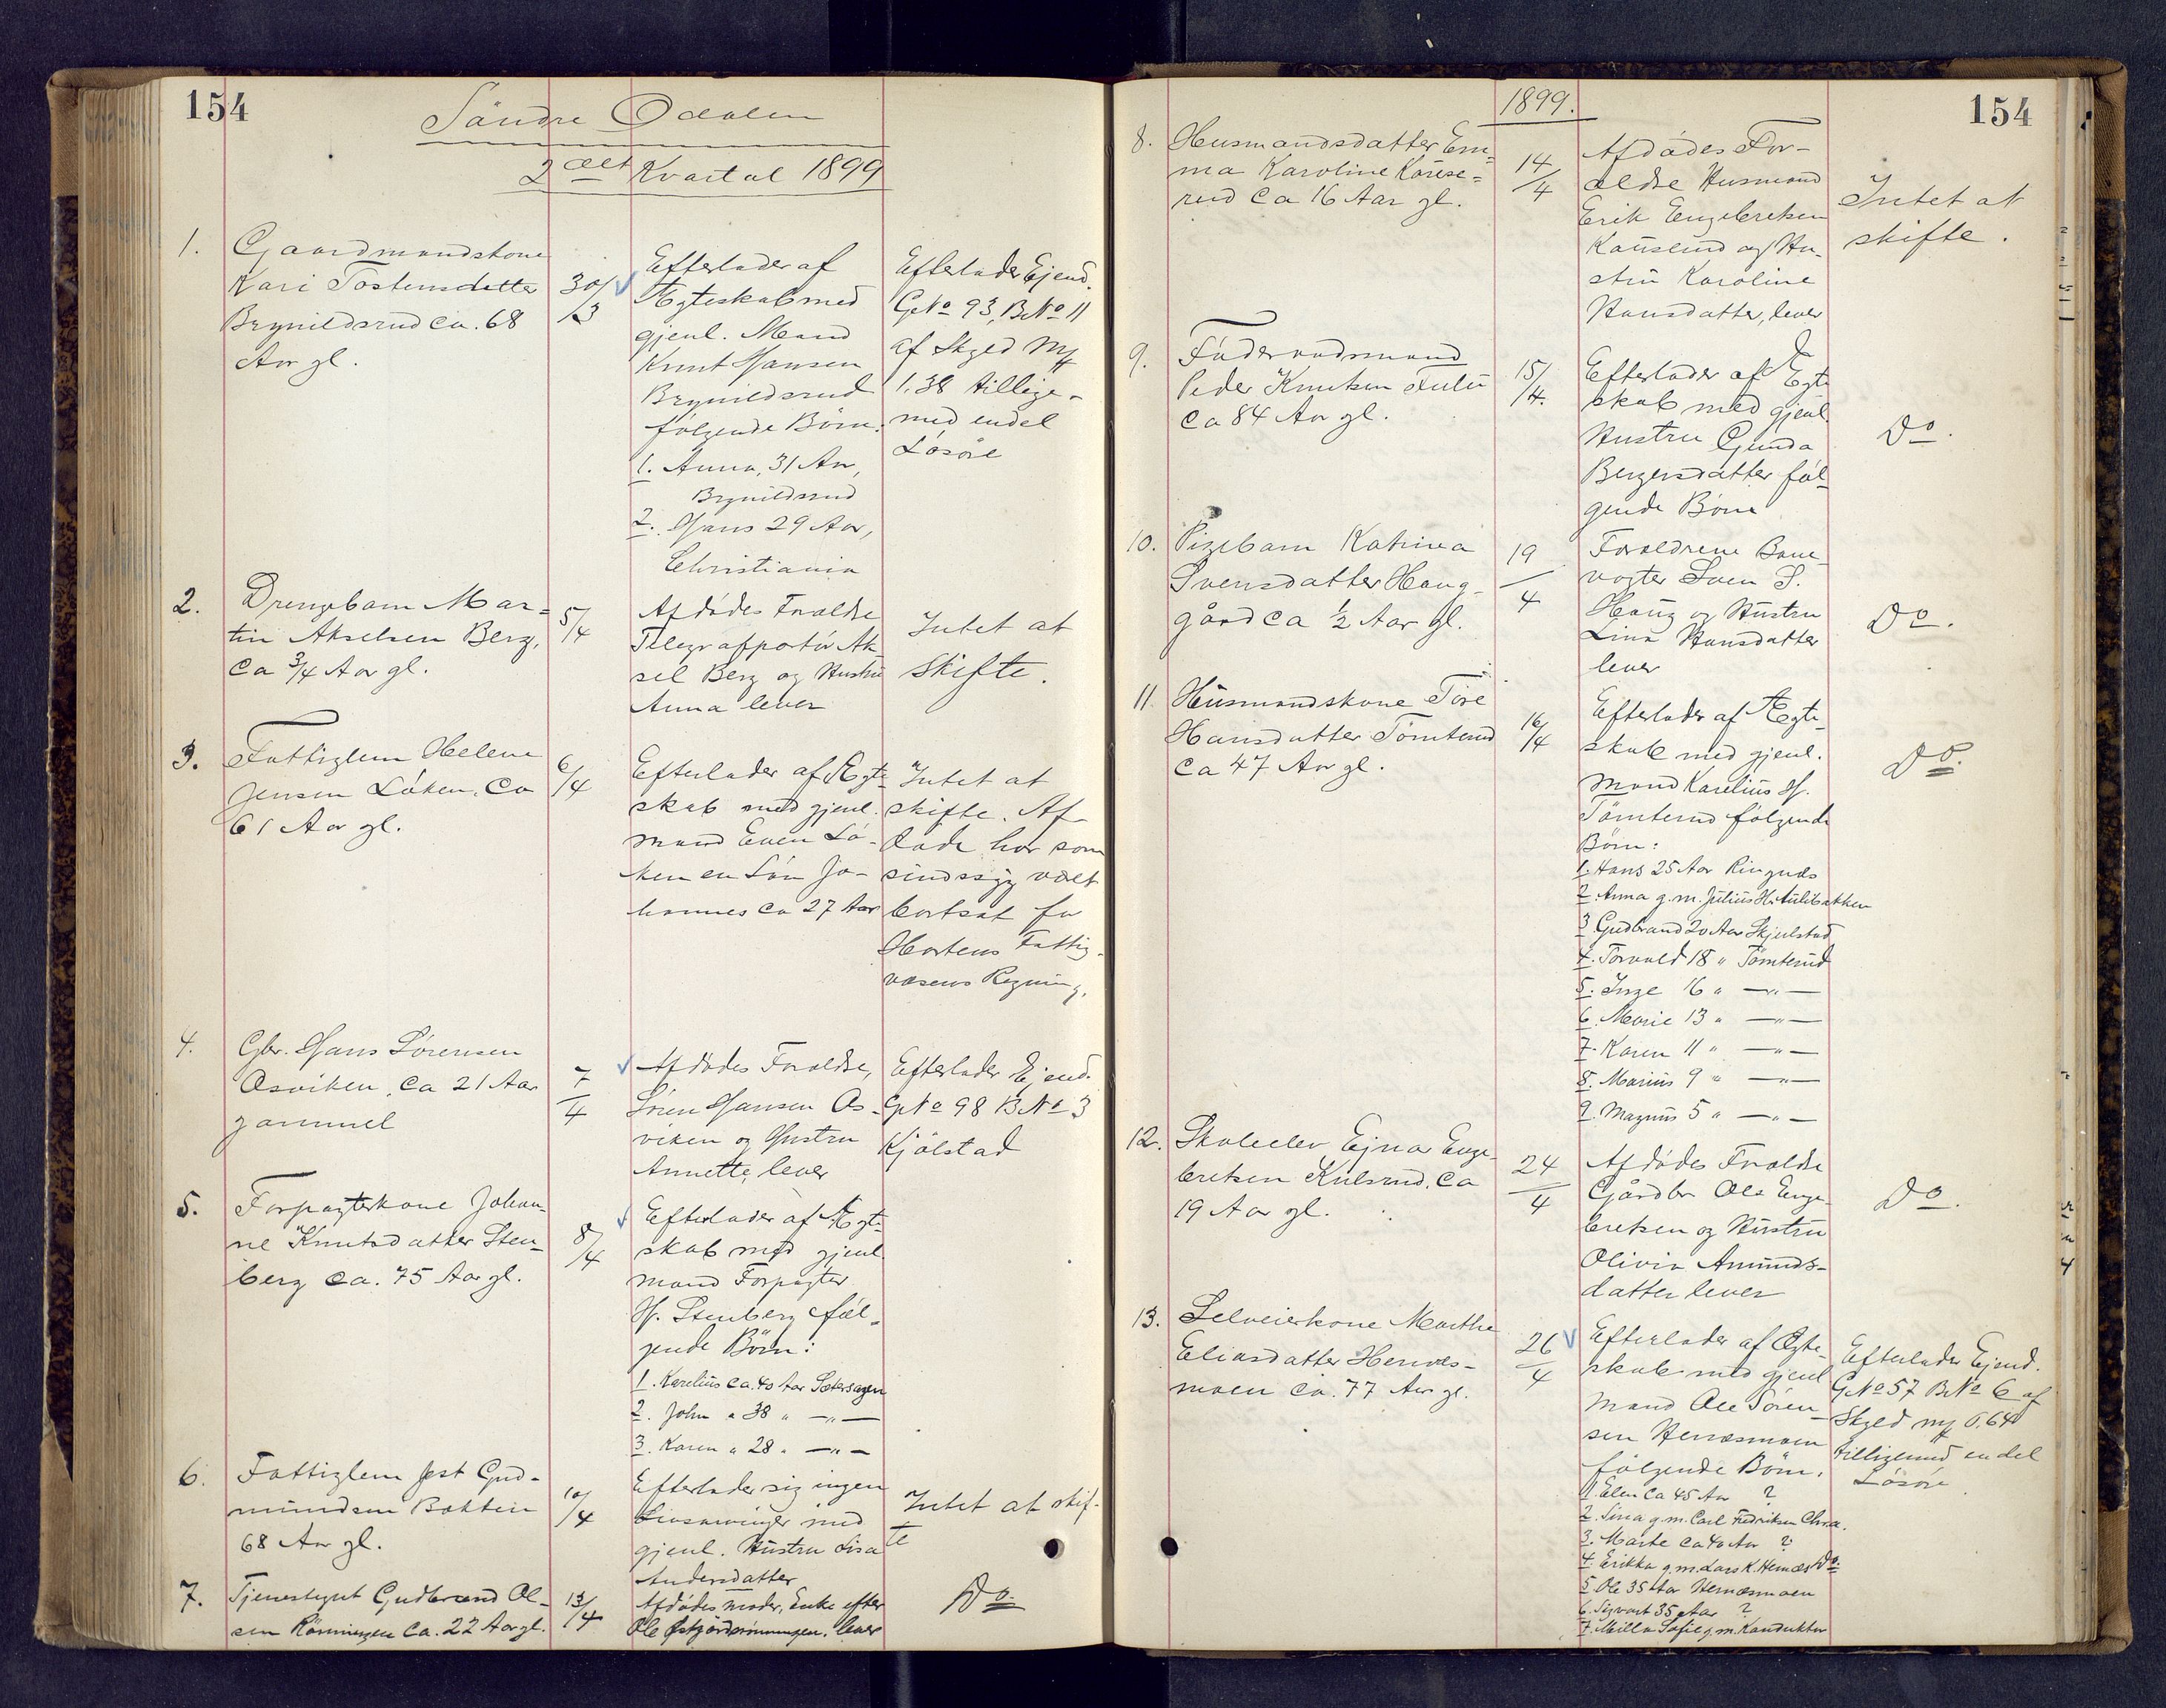 154
Söndre Odalen
2det Kvartal 1899
1.
Gaardmandskone
Kari Tostensdatter
Brynildsrud ca. 68
Aar gl.
30/3
Efterlader af
Ægteskab med
gjenl. Mand
Knut Hansen
Brynildsrud
følgende Börn:
1. Anna, 31 Aar,
Brynildsrud
2. Hans 29 Aar,
Christiania
Efterlader Ejend.
GNo 93, BNo 11
af Skyld My
1.38 tillige-
med endel
Lösöre
2.
Drengebarn Mar-
tin Akselsen Berg,
ca 3/4 Aar gl.
5/4
Afdödes Forældre
Telegrafpotör Ak-
sel Berg og Hustru
Anna lever
Intet at
skifte.
3.
Fattiglem Helene
Jensen Löken, ca
61 Aar gl.
6/4
Efterlader af Ægte-
skab med gjenl.
Mand Even Lö-
ken en Sön Jo-
hannes ca 27 Aar
Intet at
skifte. Af-
döde har som
sindssyg vært
bortsat for
Hortens Fattig-
væsens Regning.
4.
Gbr. Hans Sörensen
Osviken, ca 21 Aar
gammel
7/4
Afdödes Forældre,
Sören Hansen Os-
viken og Hustru
Annette, lever
Efterlader Ejend.
GNo 98 BNo 3
Kjölstad
5.
Forpagterkone Johan-
ne Knutsdatter Sten-
berg ca. 75 Aar gl.
8/4
Efterlader af Ægte-
skab med gjenl
Mand Forpagter
H. Stenberg föl-
gende Börn:
1. Karelius ca. 40 Aar Sætersagen
2. John " 38 " —"—
3. Karen " 28 " —"—
6.
Fattiglem Jest Gud-
mundsen Bakken
68 Aar gl.
10/4
Efterlader sig ingen
Livsarvinger med
gjenl. Hustru Lisa
Andersdatter
Intet at skif-
te
7.
Tjenestegut Gudbrand Ol-
sen Rönningen ca. 22 Aar gl.
13/4
Afdödes moder, Enke efter
Ole lever
Do.
1899.
154
8.
Husmandsdatter Em-
ma Karoline
rud ca 16 Aar gl.
14/4
Afdödes For-
ældre Husmand
Erik Engebretsen
og Hu-
stru Karoline
Hansdatter, lever
Intet at
skifte.
9.
Föderaadsmand
Peder Knutsen Fulu
ca 84 Aar gl.
15/4.
Efterlader af Ægte-
skab med gjenl.
Hustru Gunda
Bergersdatter föl-
gende Börn
Do.
10.
Pigebarn Katrina
Svensdatter Haug-
gård ca 1/2 Aar gl.
19/4
Forældrene Bane-
vogter Sven S.
Haug og Hustru
Lina Hansdatter
lever
Do.
11.
Husmandskone Töre
Hansdatter Tömterud
ca 47 Aar gl.
16/4
Efterlader af Ægte-
skab med gjenl.
Mand Karelius H.
Tömterud følgende
Börn:
1. Hans 25 Aar Ringnæs
2. Anna g. m. Julius H. Aulibakken
3 Gudbrand 20 Aar Skjelstad
4. Torvald 18 " Tömterud
5. Inge 16 " —"—
6. Marie 13 " —"—
7. Karen 11 " —"—
8. Marius 9 " —"—
9. Magnus 5 " —"—
Do.
12.
Skoleelev Ejnar Enge-
bretsen Kulsrud, ca
19 Aar gl.
24/4
Afdödes Forældre
Gårdbr Ole Enge-
bretsen og Hustru
Olivia Amunds-
datter lever
Do.
13.
Selveierkone Marthe
Eliasdatter Hernæs-
moen ca. 77 Aar gl.
26/4
Efterlader af Ægte-
skab med gjenl
Mand Ole Sören-
sen Hernæsmoen
følgende Börn,
1. Elen ca 45 Aar ?
2. Sina g. m. Carl Fredriksen Chr.a.
3. Marte ca 40 Aar ?
4. Erikka g. m. Lars K. Hernæs Do.
5. Ole 35 Aar Hernæsmoen
6. Sigvart 35 Aar ?
7. Milla Sofie g. m. Konduktör
Efterlader Ejend.
GNo 57 BNo 6 af
Skyld my 0.64
tilligemed endel
Lösöre